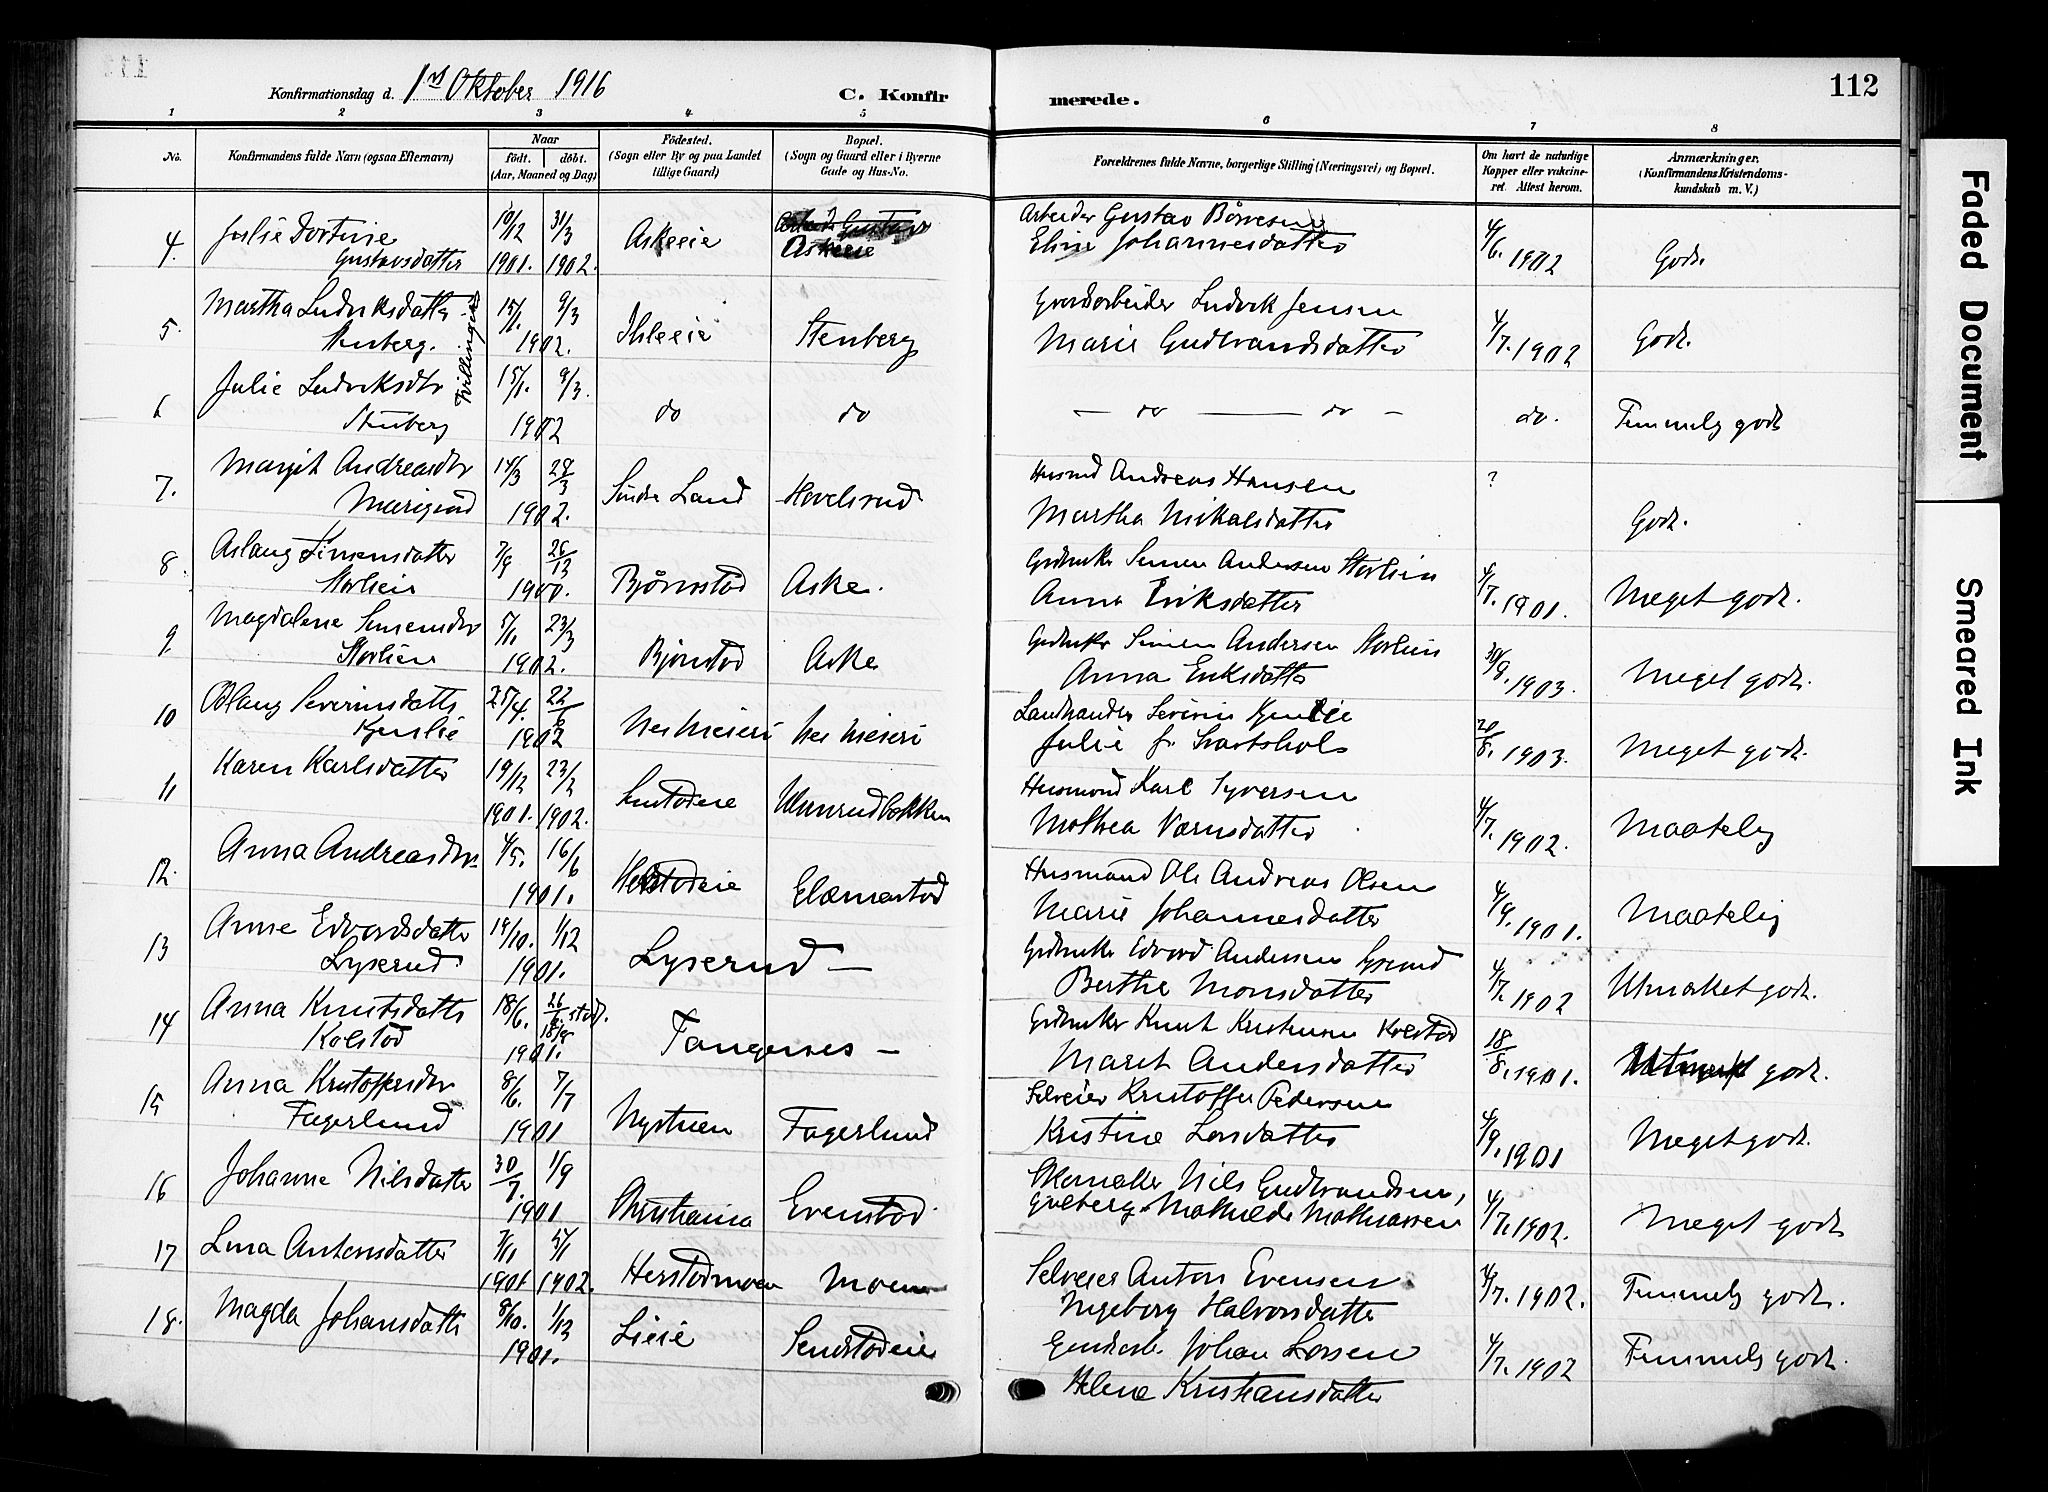 112
Konfirmationsdag d. 1ste Oktober 1916
C. Konfir merede.
1 2 3 4 5 6 7 8
No.
Konfirmandens fulde Navn (ogsaa Efternavn)
Naar
födt. döbt.
(Aar, Maaned og Dag)
Födested.
(Sogn eller By og paa Landet
tillige Gaard)
Bopæl.
(Sogn og Gaard eller i Byerne
Gade og Hus-No.
Forældrenes fulde Navne, borgerlige Stilling (Næringsvei) og Bopæl.
Om havt de naturlige
Kopper eller vakcine-
ret. Attest herom.
Anmærkninger.
(Konfirmandens Kristendoms-
kundskab m. V.)
4. Julie Dortine 10/12 31/3 Askeeie Askeeie Arbeider Gustav Börresen 4/6. 1902 Godt.
Gustavsdatter 1901. 1902. Eline Johannesdatter
5. Martha Ludviksdatter 15/1. 9/3 Ihleeie Stenberg Gaardarbeider Ludvik Jensen 4/7. 1902 Godt.
Stenberg. 1902. Marie Gudbrandsdatter
Tvillinger
6 Julie Ludviksdtr 15/1. 9/3. do do — do — do — do. Temmelig godt
Stenberg 1902
7. Margit Andreasdtr 14/3 29/3 Söndre Land Hovelsrud Husmd Andreas Hansen ? Godt.
1902. Martha Nikalsdatter
8. Aslaug Simensdatter 7/9 26/12 Bjørnstad Aske. Grdbruker Simen Andersen Storlien 4/7. 1901. Meget godt.
Storlien 1900. Anna Eriksdatter
9. Magdalene Simensdtr 5/11 23/3 Bjørnstad Aske Grdbruker Simen Andersen Storlien 30/9. 1903. Meget godt.
Storlien 1902. Anna Eriksdatter
10 Aslaug Severinsdatter 25/4. 22/6 Nes Meieri Nes Meieri Landhandler Severin Kjenslie 20/8. 1903. Meget godt.
Kjenslie 1902 Julie f. Svartshol
11 Karen Karlsdatter 19/12 23/2 Husmand Karl Syversen 4/7. 1902. Maatelig
1901. 1902. Mathea
12. Anna Andreasdtr 4/5. 16/6 Elamerstad Husmand Ole Andreas Olsen 4/9. 1901. Maatelig
1901. Marie Johannesdatter
13 Anne Edvardsdatter 19/10. 1/12 Lyserud — Grdbruker Edvard Andersen Lyserud 4/7. 1902 Utmærket godt.
Lyserud 1901. Berthe Monsdatter
14 Anna Knutsdatter 18/6. 26/6. stad. Tangernes — Grdbruker Knut Kristiansen Kolstad 18/8. 1901. godt.
Kolstad 18/8 1901. Marit Andersdatter
15 Anna Kristoffersdtr 8/6. 7/7 Nystuen Fagerlund Selveier Kristoffer Pedersen 4/9. 1901 Meget godt.
Fagerlund 1901 Kristine Larsdatter
16 Johanne Nilsdatter 30/7. 1/9 Christiania Evenstad Nils Gudbrandsen, 4/7. 1902. Meget godt
1901 Mathilde Mathiassen
17 Lina Antonsdatter 7/11 5/1 Herstadmoen Moen Selveier Anton Evensen 4/7. 1902. Temmelig godt.
1901 1902. Ingeborg Halvorsdatter
18. Magda Johansdatter 8/10. 1/12 Lieie Sendstadeie Johan Larsen 4/7. 1902 Temmelig godt.
1901. Helene Kristiansdatter
Faded Document
Smeared Ink